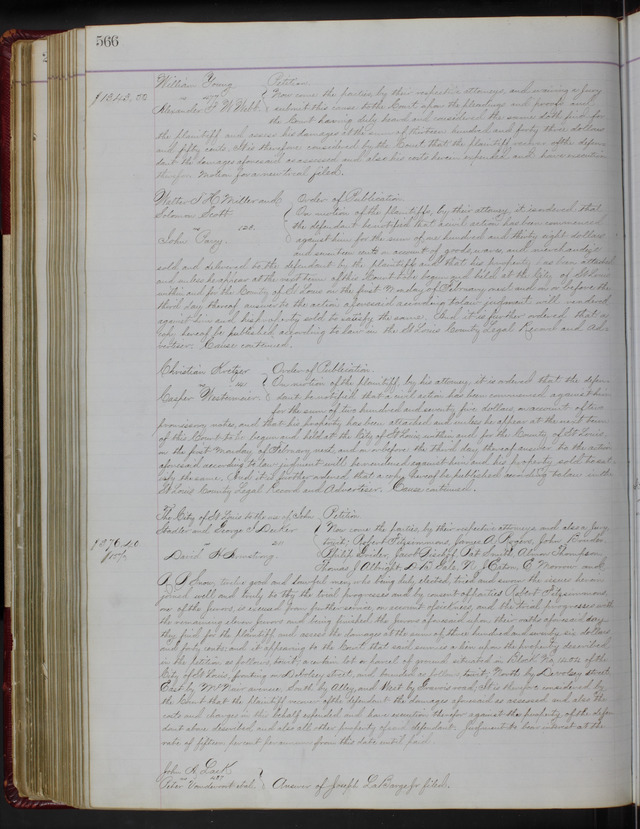 566
William Young Petition
$1343.50 vs Now come the parties, by their respective attorneys, and waiving a jury
Alexander F W Webb submit this cause to the Court upon the pleadings and proofs and
the Court having duly heard and considered the same doth find for
the plaintiff and assess his damages at the sum of thirteen hundred and forty three dollars
and fifty cents. It is therefore considered by the Court that the plaintiff recover of the defen-
dant the damages aforesaid as assessed and also his costs herein expended, and have execution
therefor. Motion for a new trial filed.
Order of Publication
Solomon Scott. On motion of the plaintiffs, by their attorney, it is ordered, that
vs the defendant be notified that a civil action has been commenced
John against him for the sum of one hundred and thirty eight dollars
and cents on account of goods, wares, and merchandize
sold and delivered to the defendant by the plaintiffs and that his property has been attached
and unless he appear at the next term of this Court to be begun and held at the City of St Louis
within and for the County of St Louis on the first Monday of February next and on or before the
third day thereof answer to the action aforesaid according to law judgment will be rendered
against him and his property sold to satisfy the same. And it is further ordered that a
copy hereof be published according to law in the St Louis County Legal Record and Ad-
vertiser. Cause continued.
Christian Order of Publication
vs On motion of the plaintiff, by his attorney, it is ordered that the defen-
Casper Westermeier. dant be notified that a civil action has been commenced against him
for the sum of two hundred and seventy five dollars on account of two
promissory notes, and that his property has been attached and unless he appear at the next term
of this Court to be begun and held at the City of St Louis, within and for the County of St Louis,
on the first Monday of February next, and on or before the third day thereof answer to the action
aforesaid according to law judgment will be rendered against him and his property sold to sat-
isfy the same. And it is further ordered that a copy hereof be published according to law in the
St Louis County Legal Record and Advertiser. Cause continued.
The City of St Louis to the use of John Petition
and George Decker Now come the parties, by their respective attorneys and also a jury
$376.40 vs towit: Robert Fitzsimmons, James A. Rogers, John
15% David H Armstrong. Philip Jacob Pat Smith, Thompson
Thomas J Albright, Gale, and
Snow, twelve good and lawful men, who being duly elected, tried and sworn the issues herein
joined well and truly to try the trial progresses and by consent of parties Robert Fitzsimmons,
one of the jurors, is excused from further service, on account of sickness, and the trial progresses with
the remaining eleven jurors and being finished the jurors aforesaid upon their oaths aforesaid say
they find for the plaintiff and assess the damages at the sum of three hundred and seventy six dollars
and forty cents, and it appearing to the Court that said sum is a lien upon the property described
in the petition as follows, towit: a certain lot or parcel of ground situated in Block No of the
City of St Louis, fronting on street, and bounded as follows towit, North by street
East by McNair avenue, South by Alley, and West by road; It is therefore considered by
the Court that the plaintiff recover of the defendant the damages aforesaid as assessed and also the
costs and charges in this behalf expended and have execution therefor against the property of the defen
dant above described and also all other property of said defendant. Judgment to bear interest at the
rate of fifteen percent per annum from this date until paid.
John A. Lack
vs
Peter et al. Answer of Joseph LaBarge jr filed.